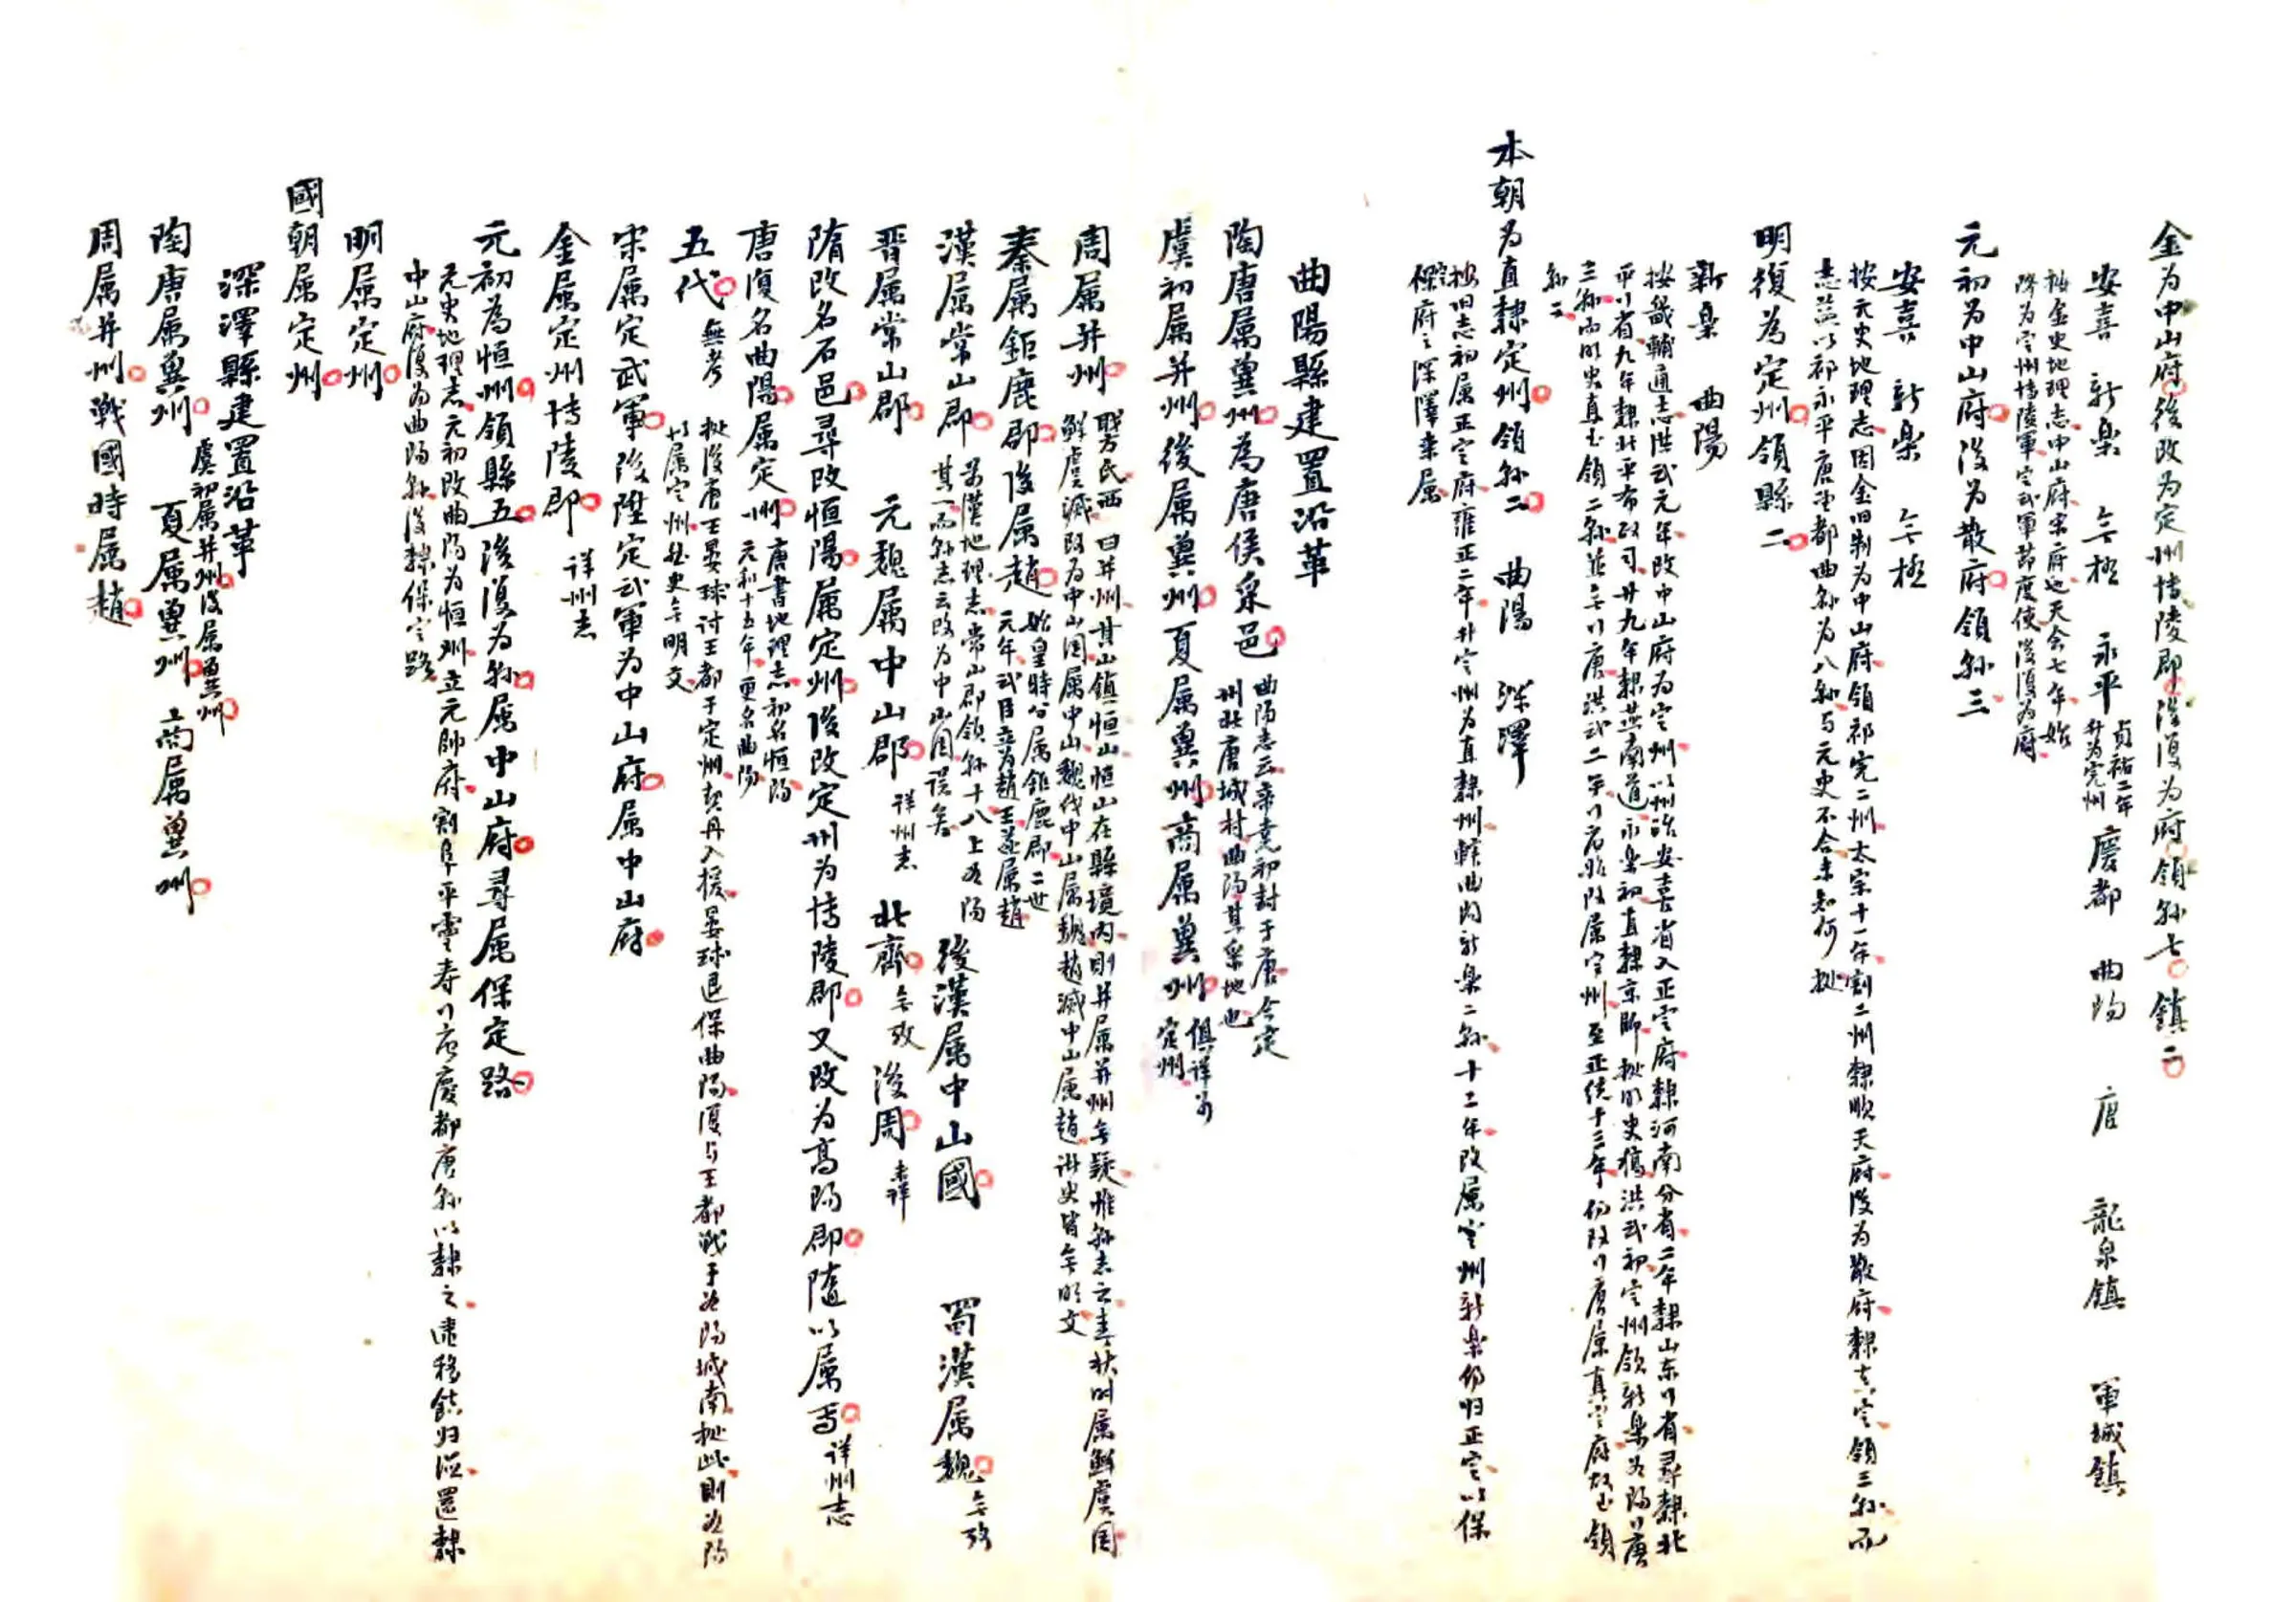 金为中山府後改为定州博陵郡後復为府領縣七鎮二
安喜 新樂 無極 永平 貞祐二年升为完州 慶都 曲陽 唐 龍泉鎮 軍城鎮
按金史地理志中山府宋府也天会七年始
降为定州博陵軍定武軍節度使後復为府
元初为中山府後为散府領縣三
安喜 新樂 無極
按元史地理志因金旧制为中山府領祁完二州太宗十一年割二州隸順天府後为散府隸真定領三縣而
志並以祁永平唐慶都曲陽为八縣与元史不合未知何拠
明復為定州領縣二
新樂 曲陽
按畿輔通志洪武元年改中山府为定州以州治安喜省入正定府隸河南分省二年隸山东行省尋隸北
平行省九年隸北平布政司廿九年隸燕南道永樂初直隸京師拠明史稿洪武初定州領新樂曲陽行唐
三縣而明史真定領二縣並無行唐洪武二年行省始改属定州至正統十三年仍改行唐属真定府故止領
縣二
本朝为直隸定州領縣二 曲陽 深澤
按旧志初属正定府雍正二年升定州为直隸州轄曲陽新樂二縣十二年改属定州新樂仍归正定以保
定府之深澤来属
曲陽縣建置沿革
陶唐属冀州為唐侯采邑 曲陽志云帝堯初封于唐今定
州北唐城村曲陽其采地也
虞初属并州後属冀州夏属冀州商属冀州 俱详前
定州
周属并州 職方氏西 曰并州其山鎮恒山恒山在縣境内則并属并州無疑惟縣志云春秋时属鮮虞国
鮮虞滅改为中山国属中山魏伐中山属魏趙滅中山属趙諸史皆無明文
秦属鉅鹿郡後属趙 始皇時分属鉅鹿郡二世
元年武臣立为趙王遂属趙
漢属常山郡 前漢地理志常山郡領縣十八上曲陽
其一而縣志云改为中山国误矣 後漢属中山國 蜀漢属魏 無攷
晋属常山郡 元魏属中山郡 详州志 北齊 無攷 後周 未详
隋改名石邑尋改恒陽属定州後改定州为博陵郡又改为高陽郡隨以属焉 详州志
唐復名曲陽属定州 唐書地理志初名恒陽
元和十五年更名曲陽
五代 無考 拠後唐王晏球讨王都于定州契丹入援晏球退保曲陽復与王都战于曲陽城南拠此則曲陽
以属定州歷史無明文
宋属定武軍後陞定武軍为中山府属中山府
金属定州博陵郡 详州志
元初為恒州領縣五後復为縣属中山府尋属保定路
元史地理志元初改曲陽为恒州立元帥府割阜平靈寿行唐慶都唐縣以隸之遂移鎮归德還隸
中山府復为曲陽縣後隸保定路
明属定州
國朝属定州
深澤縣建置沿革
陶唐属冀州 虞初属并州後属冀州 夏属冀州 商属冀州
周属并州戰國時属趙